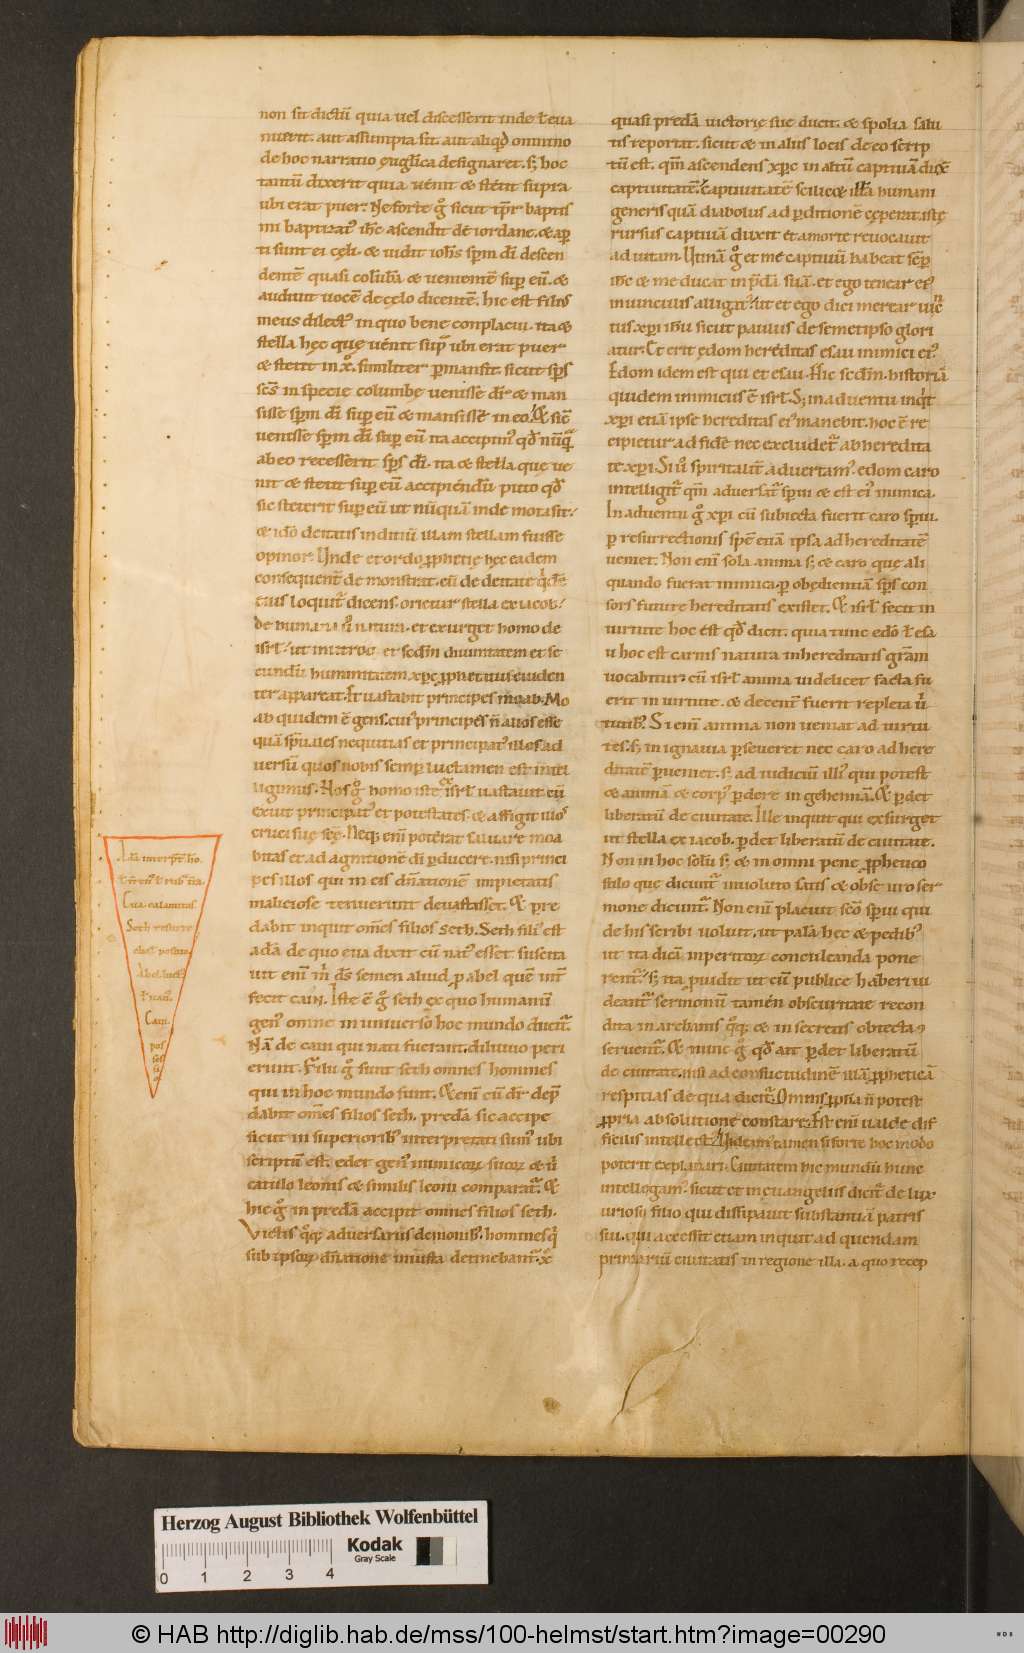 non sit dictū quia uel discesserit inde ł eua
nuerit. aut assumpta sit. aut aliqd omnino
de hoc narratio ęuglica designaret. s; hoc
tantū dixerit quia uenit & stetit supra
ubi erat puer. Ne forte g sicut tpr baptis
mi baptizat ihc ascendit de iordane. & aper
ti sunt ei cęli. & uidit iohs spm di descen
dentē quasi colubā & uenientē sup eū. &
audiuit uocē de cęlo dicentē. hic est filius
meus dilect in quo bene conplacui. ita &
stella hęc quę uenit sup ubi erat puer
& stetit in xo. similiter pmansit. sicut sps
scs in specie columbę uenisse dr & man
sisse spm di sup eū & mansisse in eo. Et sic
uenisse spm di sup eū ita accipim qd nūq
ab eo recesserit sps di. ita & stella que ue
nit & stetit sup eū accipiendū puto qd
sic steterit sup eū ut nūquā inde mota sit.
& ido deitatis indiciū illam stellam fuisse
opinor. Unde et ordo pphetię hęc eadem
consequent demonstrat. cū de deitate qdē
eius loquit dicens. orietur stella ex iacob.
de humana u natura. et exurget homo de
isrl. ut in utroq et scdm diuinitatem et se
cundū humanitatem xpc pphetatus euiden
ter appareat. Et uastabit principes moab. Mo
ab quidem ē gens. cui principes n alios esse
quā spuales nequitias et principat illos. ad
uersū quos nobis semp luctamen est intel
ligimus. Nos g homo iste ex isrl uastauit cū
exuit principat et potestates. & affigit illos
cruci suę. Neq eni poterat saluare moa
bitas et ad agnitionē di pducere. nisi princi
pes illos qui in eis dnationē impietatis
maliciose tenuerunt deuastasset. Et pre
dabit inquit omes filios seth. Seth fili est
adā de quo eua dixit cū nat esset suscita
uit eni m ds semen aliud p abel quē int
fecit cain. Iste ē g seth ex quo humanū
gen omne in uniuerso hoc mundo ducit.
Nā de cain qui nati fuerant. diluuio peri
erunt. Filii g sunt seth omnes homines
qui in hoc mundo sunt. Et eni cū dr dep
dabit omes filios seth. predā sic accipe
sicut in superiorib interpretati sum ubi
scriptū est. edet gen inimicorum suorum & u
catulo leonis & similis leoni comparat. Et
hic g in predā accipit omnes filios seth.
Victis qq aduersariis demonib. hominesq
sub ipsorum dnatione iniusta detinebant. &
quasi predā victorię sue ducit. & spolia salu
tis reportat. sicut & in aliis locis de eo scrip
tū est. qm ascendens xpc in altū captiuā duxē
captiuitatē. Captiuitatē scilicet illā humani
generis quā diabolus ad pditionē cęperat. istę
rursus captiuā duxit et a morte reuocauit
ad uitam. Utinā g et me captiuū habeat semp
ihc & me ducat in pdā suā. et ego tenear ei
in uinculis alligat. ut et ego dici merear uinc
tus xpi ihu sicut paulus de semetipso glori
atur. Et erit edom hereditas esau inimici ei.
Edom idem est qui et esau. Hic scdm historiā
quidem inimicus ē isrl. S; in aduentu inqt
xpi etiā ipse hereditas ei manebit. hoc ē re
cipietur ad fidē nec excludet ab heredita
te xpi. Si u spiritalit aduertam. edom caro
intelligit qm aduersat spui & est ei inimica.
In aduentu g xpi cū subiecta fuerit caro spui.
p resurrectionis spē etiā ipsa ad hereditatē
ueniet. Non eni sola anima s; & caro que ali
quando fuerat inimica. p obędientiā sps con
sors future hereditatis existet. Et isrl fecit in
uirtute hoc est qd dicit. quia tunc edo ł esa
u hoc est carnis natura in hereditatis gram
uocabitur. cū isrl anima uidelicet facta fu
erit in uirtute. & decent fuerit repleta uir
tutib. Si eni anima non ueniat ad uirtu
tes. s; in ignauia pseueret nec caro ad here
ditatē pueniet. s; ad iudiciū illi qui potest
& animā & corp pdere in gehennā. Et pdet
liberatū de ciuitate. Ille inquit qui exsurget
ut stella ex iacob. pdet liberatū de ciuitate.
Non in hoc solū s; & in omni pene pphetico
stilo que dicunt inuoluto satis & obscuro ser
mone dicunt. Non eni placuit sco spui qui
de his scribi uoluit. ut palā hec & pedib
ut ita dicā inperitorum conculcanda pone
rent. s; ita puidit ut cū publice haberi ui
deant sermonū tamen obscuritate recon
dita in archanis qq; & in secretis obtecta
seruent. Et nunc g qd ait pdet liberatū
de ciuitate. nisi ad consuetudinē illā ppheticā
respitias de qua dicit. Omnis ppsia n potest
ppria absolutione constare. Est eni ualde dif
ficilis intellect. Uideam tamen si forte hoc modo
poterit explanari. Ciuitatem hic mundū hunc
intellegam. sicut et in ęuangeliis dicit de lux
urioso filio qui dissipauit substantiā patris
sui. qui accessit etiam inquit ad quendam
primariū ciuitatis in regione illa. a quo recep
Adā interpr ho.
Eua calamitas
Seth resurre
Abel luct
Cain
pos
ses
si
o
Herzog August Bibliothek Wolfenbüttel
Kodak
Gray Scale
0 1 2 3 4
© HAB http://diglib.hab.de/mss/100-helmst/start.htm?image=00290